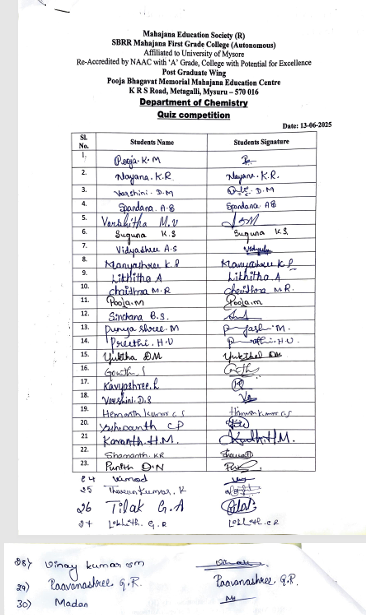 Mahajana Education Society (R)
SBRR Mahajana First Grade College (Autonomous)
Affiliated to University of Mysore
Re-Accredited by NAAC with 'A' Grade, College with Potential for Excellence
Post Graduate Wing
Pooja Bhagavat Memorial Mahajana Education Centre
K R S Road, Metagalli, Mysuru – 570 016
Department of Chemistry
Quiz competition
Date: 13-06-2025
Sl. No. Students Name Students Signature
1. Pooja K.M
2. Nayana. K.R Nayana. K.R.
3. Varshini. D.M D.M
4. Spandana A.B Spandana AB
5. Varshitha M.U
6. Suguna K.S Suguna K.S.
7. Vidyashree A.S
8. Manyashree K P Manyashree K P
9. Likhitha A Likhitha A
10. Chaithra M.R Chaithra M.R.
11. Pooja.m Pooja.m
12. Sinchana B.S.
13. Punya Shree. M
14. Preethi. H.U
15. Yuktha D.M Yuktha D.M
16.
17. Kavyashree. L
18. Varshini. D.S
19. Hemanth Kumar C S
20. Yashwanth C P
21 Karanth. H.M.
22. Shamanth. K R
23. D.N
24
25 Kumar. R
26 Tilak G.A
27 G.R
28) Vinay kumar
29) Paavanashree G.R. Paavanashree. G.R.
30) Madan